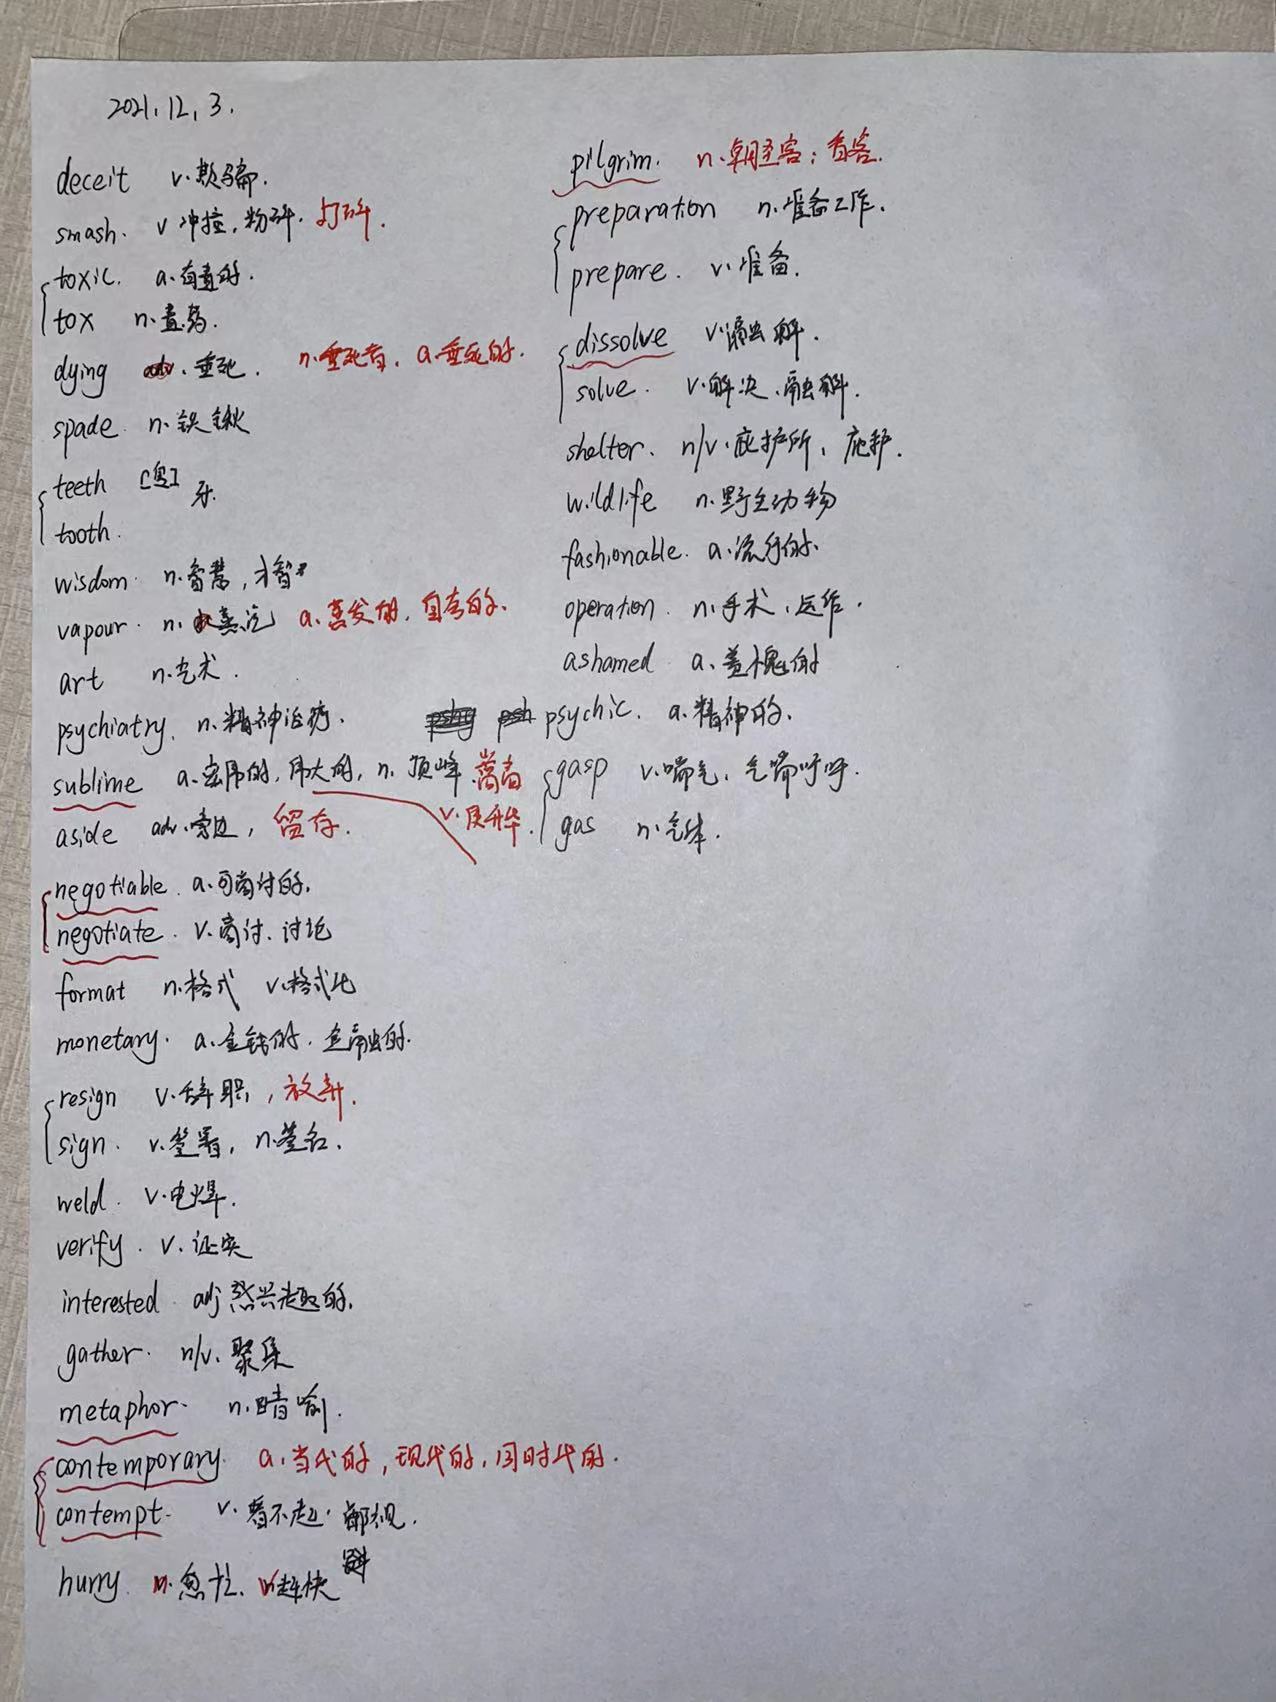 2021.12.3.
deceit v.欺骗.
smash. v 冲撞,粉碎.打碎.
toxic. a.有毒的.
tox n.毒药.
dying 垂死. n.垂死者, a.垂死的.
spade. n.铁锹
teeth [复] 牙.
tooth.
wisdom. n.智慧,才智
vapour. n.蒸汽 a.蒸发的,自夸的.
art n.艺术.
psychiatry. n.精神治疗.
sublime a.宏伟的,伟大的, n.顶峰. 崇高 v.使升华.
aside adv.旁边, 留存.
negotiable. a.可商讨的.
negotiate. v.商讨.讨论
format n.格式 v.格式化
monetary. a.金钱的.金融的.
resign v.辞职,放弃.
sign. v.签署, n.签名.
weld. v.电焊.
verify. v.证实
interested. adj 感兴趣的.
gather. n/v.聚集
metaphor. n.暗喻.
contemporary. a.当代的,现代的,同时代的.
contempt. v.看不起.鄙视.
hurry. n.匆忙. v赶快
pilgrim. n.朝圣客;香客.
preparation n.准备工作.
prepare. v.准备.
dissolve v.融解.
solve. v.解决.融解.
shelter. n/v.庇护所,庇护.
wildlife n.野生动物
fashionable. a.流行的.
operation. n.手术.运作.
ashamed a.羞愧的
psychic. a.精神的.
gasp v.喘气.气喘吁吁.
gas n.气体.